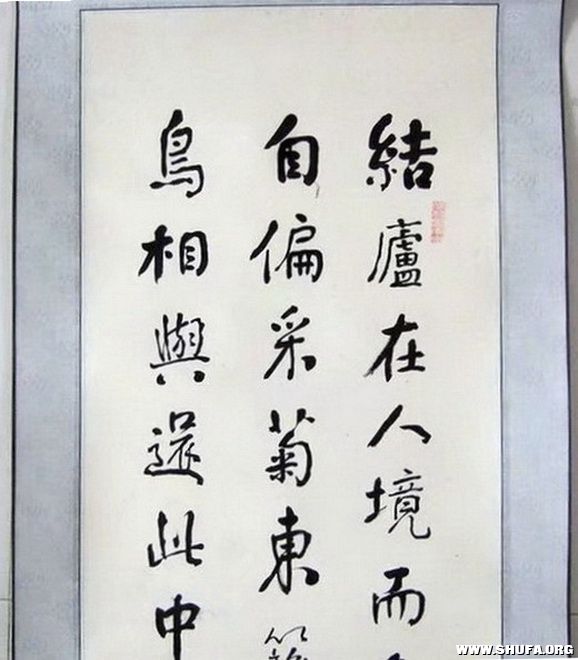 結廬在人境而
自偏采菊東籬
鳥相與還此中
WWW.SHUFA.ORG